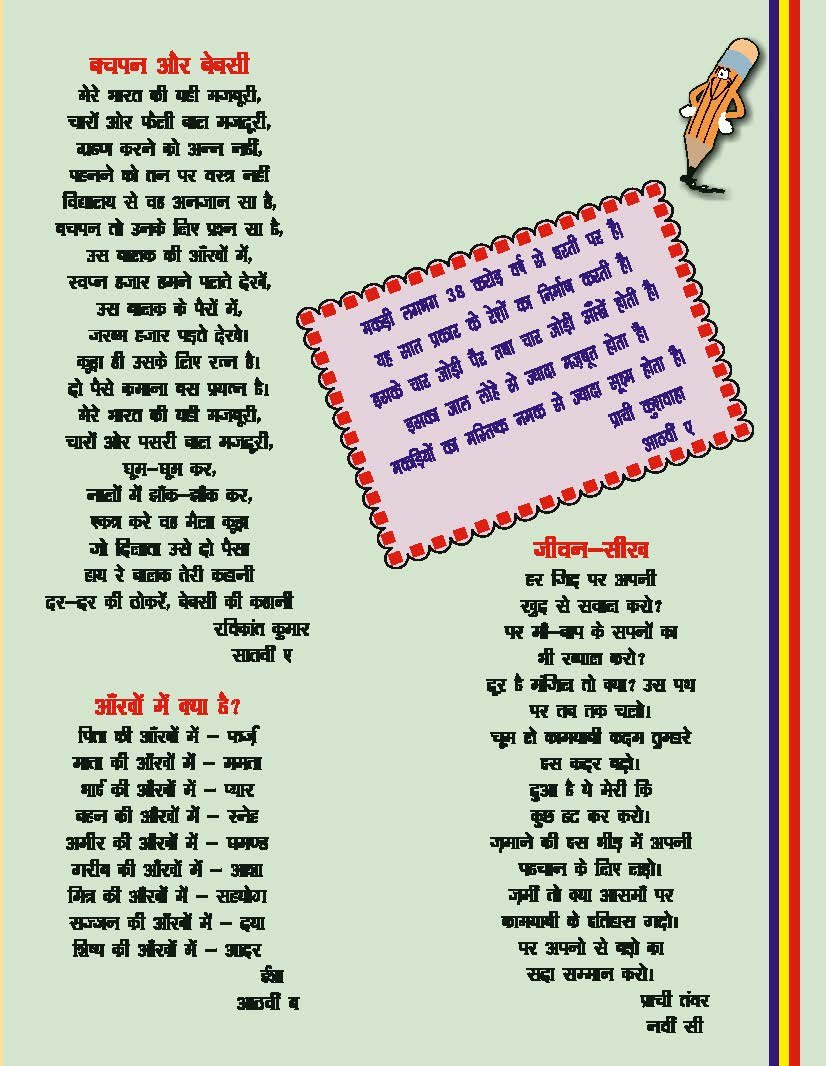 बचपन और बेबसी
मेरे भारत की यही मजबूरी,
चारों ओर फैली बाल मजदूरी,
ग्रहण करने को अन्न नहीं,
पहनने को तन पर वस्त्र नहीं
विद्यालय से वह अनजान सा है,
बचपन तो उनके लिए प्रश्न सा है,
उस बालक की आँखों में,
स्वप्न हजार हमने पलते देखें,
उस बालक के पैरों में,
जख्म हजार पड़ते देखे।
कूड़ा ही उसके लिए रत्न है।
दो पैसे कमाना बस प्रयत्न है।
मेरे भारत की यही मजबूरी,
चारों ओर पसरी बाल मजदूरी,
घूम–घूम कर,
नालों में झाँक–झाँक कर,
एकत्र करे वह मैला कूड़ा
जो दिलाता उसे दो पैसा
हाय रे बालक तेरी कहानी
दर–दर की ठोकरें, बेबसी की कहानी
रविकांत कुमार
सातवीं ए
आँखों में क्या है?
पिता की आँखों में – फर्ज़
माता की आँखों में – ममता
भाई की आँखों में – प्यार
बहन की आँखों में – स्नेह
अमीर की आँखों में – घमण्ड
गरीब की आँखों में – आशा
मित्र की आँखों में – सहयोग
सज्जन की आँखों में – दया
शिष्य की आँखों में – आदर
ईशा
आठवीं ब
मकड़ी लगभग 38 करोड़ वर्ष से धरती पर है।
यह सात प्रकार के रेशों का निर्माण करती है।
इसके चार जोड़ी पैर तथा चार जोड़ी आँखें होती है।
इसका जाल लोहे से ज्यादा मज़बूत होता है।
मकड़ियों का मस्तिष्क नमक से ज्यादा सूक्ष्म होता है।
प्राची कुशवाहा
आठवीं ए
जीवन–सीख
हर जिद्द पर अपनी
खुद से सवाल करो?
पर माँ–बाप के सपनों का
भी ख्याल करो?
दूर है मंजिल तो क्या? उस पथ
पर तब तक चलो।
चूम लो कामयाबी कदम तुम्हारे
इस कदर बढ़ो।
दुआ है ये मेरी कि
कुछ हट कर करो।
ज़माने की इस भीड़ में अपनी
पहचान के लिए लड़ो।
ज़मीं तो क्या आसमाँ पर
कामयाबी के इतिहास गढ़ो।
पर अपनो से बड़ो का
सदा सम्मान करो।
प्राची तंवर
नवीं सी